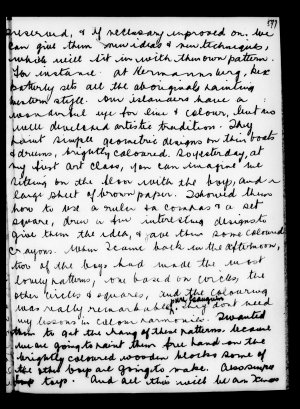 177
preserved, & if necessary improved on. We
can give them new ideas & new techniques,
which will fit in with their own pattern.
For instance, at Hermannsburg, Rex
Batterby sets all the aboriginals painting
western style. Our islanders have a
wonderful eye for line & colour, but no
well developed artistic tradition. They
paint simple geometric designs on their boats
& drums, brightly coloured. So yesterday, at
my first art class, you can imagine me
sitting on the floor with the boys, and a
large sheet of brown paper. I showed them
how to use a ruler & a compass & a set
square, drew a few interesting designs to
give them the idea, & gave them some coloured
crayons. When I came back in the afternoon,
two of the boys had made the most
lovely patterns, one based on circles, the
other circles & squares, and the colouring
was really remarkable, they don't need
pure Gauguin
my lessons in colour harmonies. I wanted
them to get the hang of these patterns because
we are going to paint them free hand on the
brightly coloured wooden blocks some of
the other boys are going to make. Also simple
toys. And all this will be an Xmas